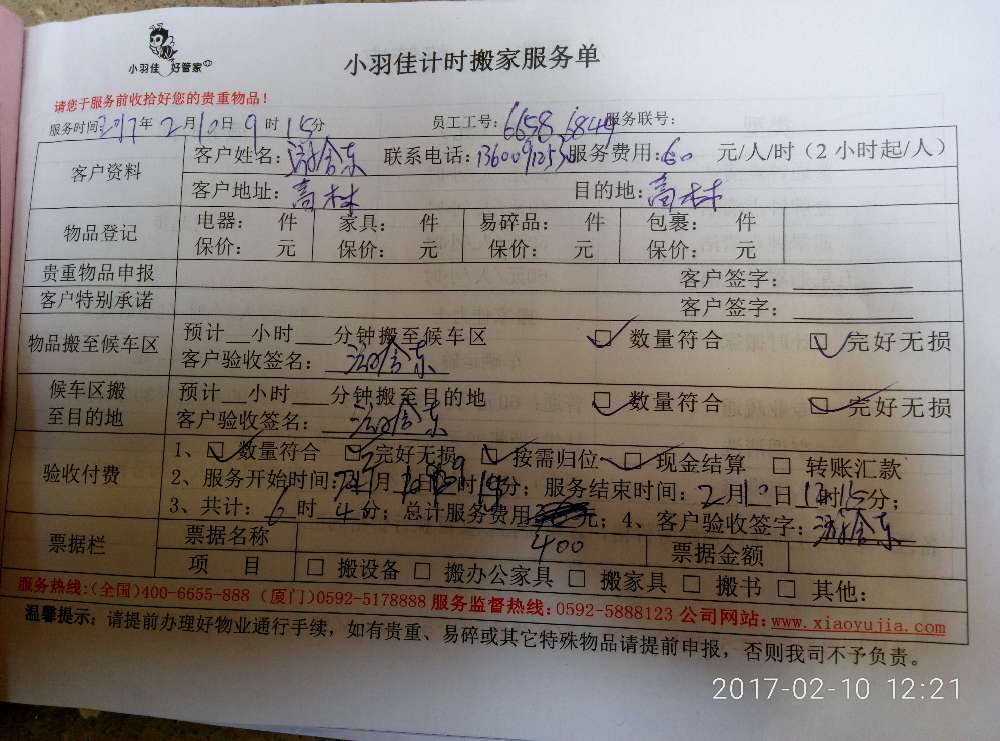 小羽佳 好管家
小羽佳计时搬家服务单
请您于服务前收拾好您的贵重物品！
服务时间：2017年2月10日9时15分 员工工号：6658 6849 服务联号：
客户资料 客户姓名： 联系电话： 服务费用：60 元/人/时（2小时起/人）
客户地址：高林 目的地：高林
物品登记 电器： 件 家具： 件 易碎品： 件 包裹： 件
保价： 元 保价： 元 保价： 元 保价： 元
贵重物品申报 客户签字：
客户特别承诺 客户签字：
物品搬至候车区 预计__小时___分钟搬至候车区 ☑ 数量符合 ☑ 完好无损
客户验收签名：
候车区搬至目的地 预计__小时___分钟搬至目的地 ☑ 数量符合 ☑ 完好无损
客户验收签名：
验收付费 1、☑ 数量符合 ☑ 完好无损 ☑ 按需归位 ☑ 现金结算 □ 转账汇款
2、服务开始时间：月 日 时 分；服务结束时间：2月10日12时15分；
3、共计：6时4分；总计服务费用 元；4、客户验收签字：
400
票据栏 票据名称 票据金额
项 目 □ 搬设备 □ 搬办公家具 □ 搬家具 □ 搬书 □ 其他：
服务热线：(全国)400-6655-888 (厦门)0592-5178888 服务监督热线：0592-5888123 公司网站：www.xiaoyujia.com
温馨提示：请提前办理好物业通行手续，如有贵重、易碎或其它特殊物品请提前申报，否则我司不予负责。
2017-02-10 12:21